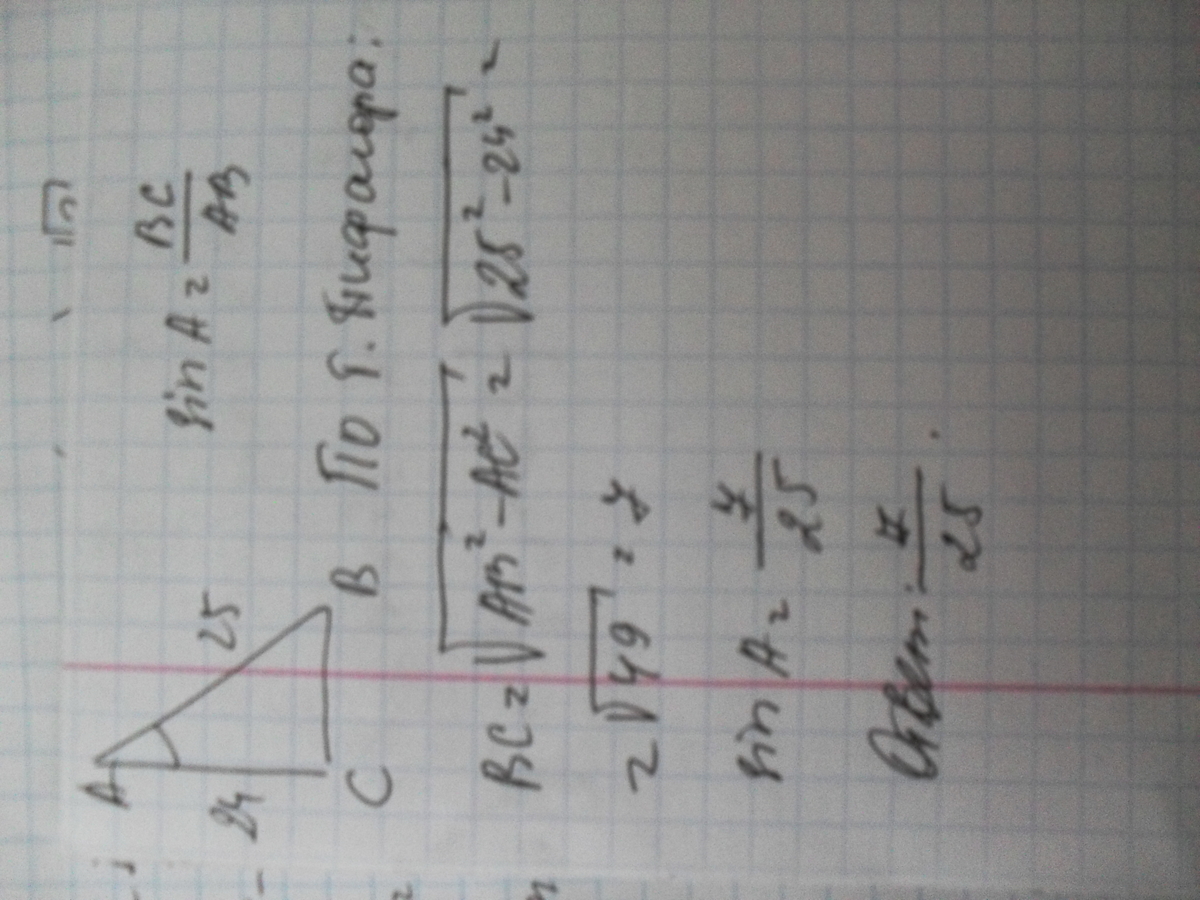 A
25
24
C
B
sin A = BC/AB
По Т. Пифагора:
BC = √AB² - AC² = √25² - 24² =
= √49 = 7
sin A = 7/25
Ответ: 7/25.